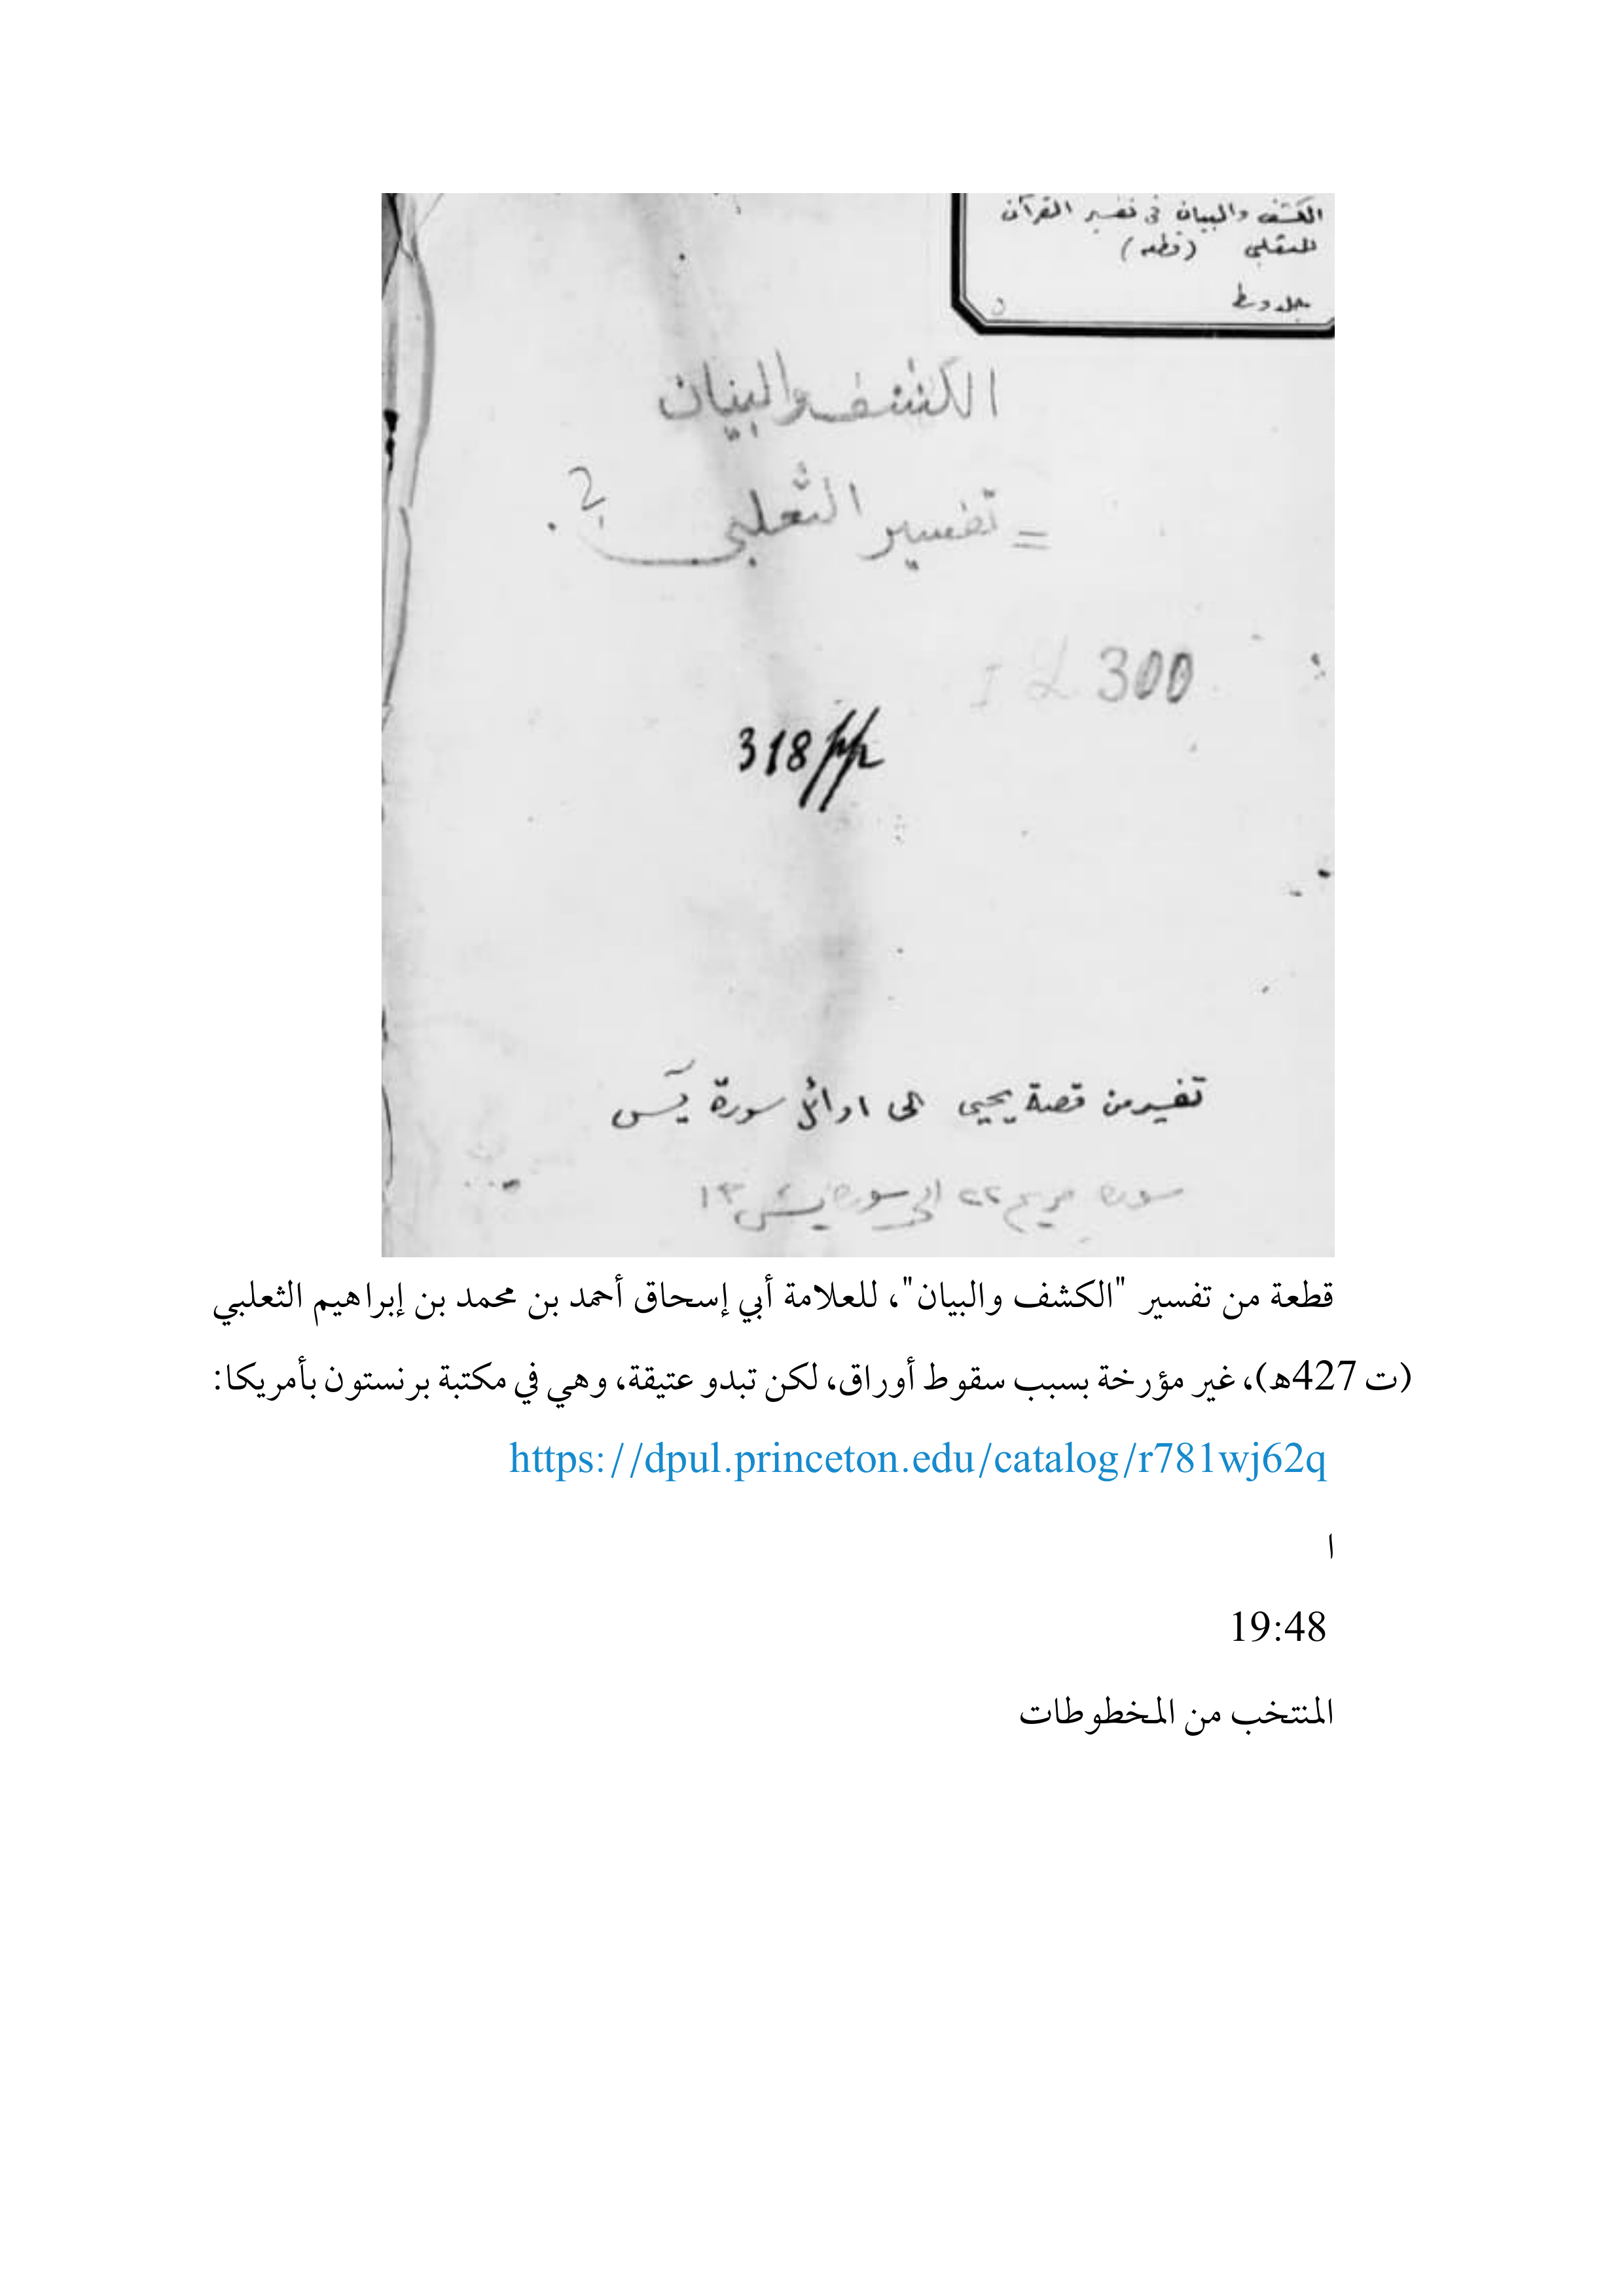 الكشف والبيان في تفسير القرآن
للثعلبي (قطعه)
مجلد وسط
الكشف والبيان
= تفسير الثعلبي ؟
£ 300
318 pp
تفسير من قصة يحيى الى اوائل سورة يٓس
سوره مريم ٢٢ الى سورة يس ١٣
قطعة من تفسير "الكشف والبيان"، للعلامة أبي إسحاق أحمد بن محمد بن إبراهيم الثعلبي
(ت 427ه)، غير مؤرخة بسبب سقوط أوراق، لكن تبدو عتيقة، وهي في مكتبة برنستون بأمريكا:
https://dpul.princeton.edu/catalog/r781wj62q
ا
19:48
المنتخب من المخطوطات